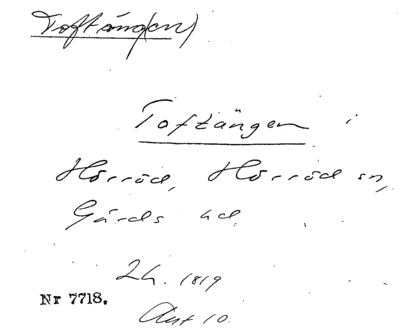 Toftäng(en)
Toftängen i
Hörröd, Hörröd sn,
Gärds hd.
Lh. 1819
Nr 7718.
Akt 10